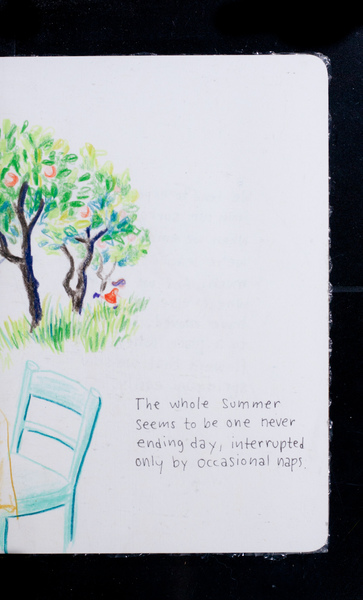 The whole Summer
seems to be one never
ending day, interrupted
only by occasional naps.